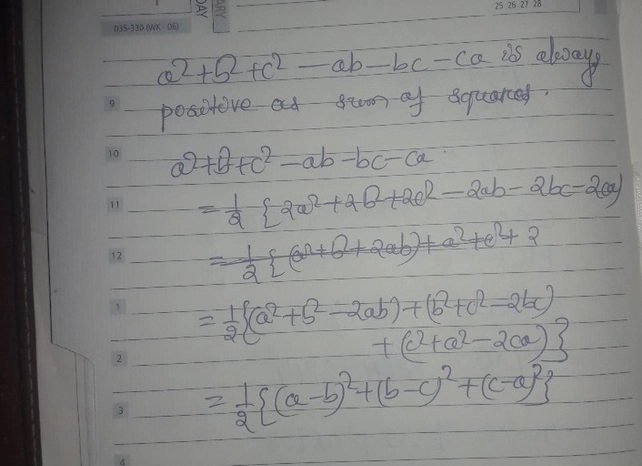 25 26 27 28
DAY
ARY
035-330 (WK - 06)
a²+b²+c² -ab-bc-ca is always
9 positive as sum of squares.
10 a²+b²+c²-ab-bc-ca
11 = 1/2 {2a²+2b²+2c²-2ab-2bc-2ca)
12 = 1/2 {(a²+b²+2ab)+a²+c²+2
1 = 1/2 {(a²+b²-2ab)+(b²+c²-2bc)
2 +(c²+a²-2ca)}
= 1/2 {(a-b)²+(b-c)²+(c-a)²}
3
4